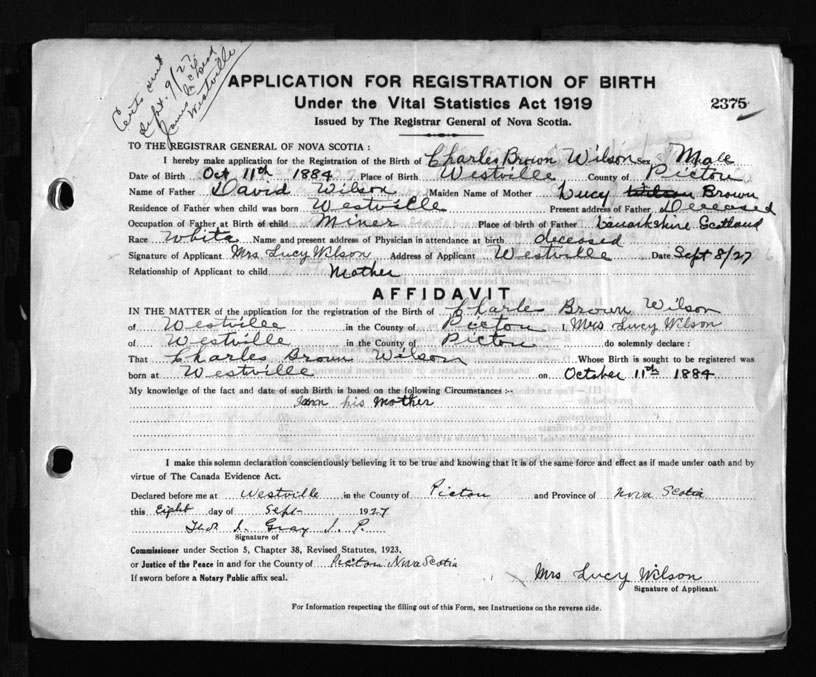 Certs sent
Sept. 9/27
Westville
APPLICATION FOR REGISTRATION OF BIRTH
Under the Vital Statistics Act 1919
2375
Issued by The Registrar General of Nova Scotia.
TO THE REGISTRAR GENERAL OF NOVA SCOTIA :
I hereby make application for the Registration of the Birth of Charles Brown Wilson Sex Male
Date of Birth Oct 11th 1884 Place of Birth Westville County of Pictou
Name of Father David Wilson Maiden Name of Mother Lucy Wilson Brown
Residence of Father when child was born Westville Present address of Father Deceased
Occupation of Father at Birth of child Miner Place of birth of Father Lanarkshire Scotland
Race White Name and present address of Physician in attendance at birth deceased
Signature of Applicant Mrs Lucy Wilson Address of Applicant Westville Date Sept 8/27
Relationship of Applicant to child Mother
AFFIDAVIT
IN THE MATTER of the application for the registration of the Birth of Charles Brown Wilson
of Westville in the County of Pictou I, Mrs Lucy Wilson
of Westville in the County of Pictou do solemnly declare :
That Charles Brown Wilson Whose Birth is sought to be registered was
born at Westville on October 11th 1884
My knowledge of the fact and date of such Birth is based on the following Circumstances :-
his Mother
I make this solemn declaration conscientiously believing it to be true and knowing that it is of the same force and effect as if made under oath and by
virtue of The Canada Evidence Act.
Declared before me at Westville in the County of Pictou and Province of Nova Scotia
this Eight day of Sept 1927
Gray J. P.
Signature of
Commissioner under Section 5, Chapter 38, Revised Statutes, 1923,
or Justice of the Peace in and for the County of Pictou Nova Scotia
If sworn before a Notary Public affix seal.
Mrs Lucy Wilson
Signature of Applicant.
For Information respecting the filling out of this Form, see Instructions on the reverse side.